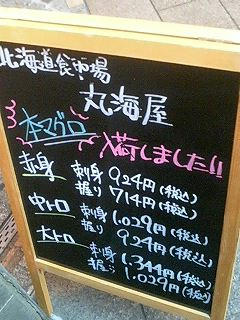 北海道食市場
丸海屋
本マグロ
入荷しました!!
赤身 刺身 924円(税込)
握り 714円(税込)
中トロ 刺身 1,029円(税込)
握り 924円(税込)
大トロ 刺身 1,344円(税込)
握り 1,029円(税込)